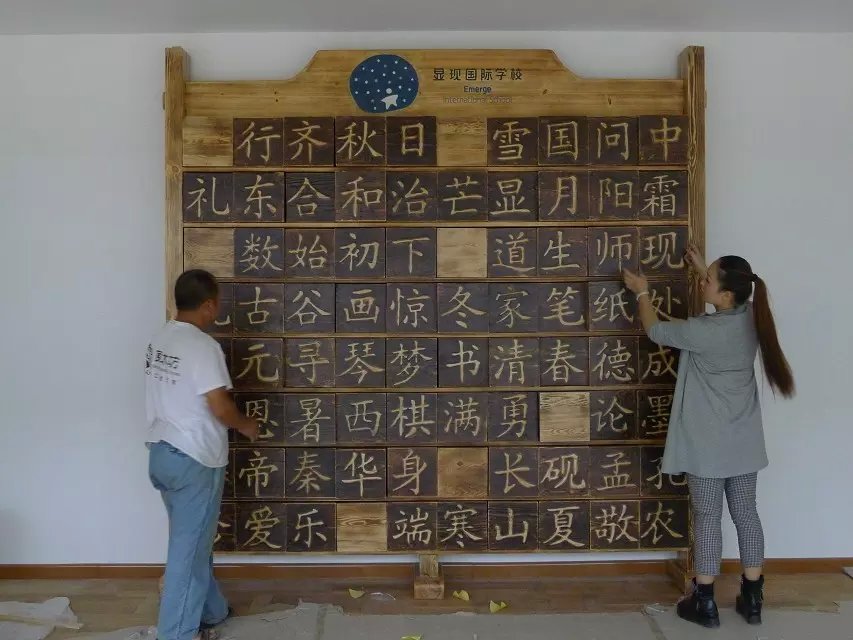 显现国际学校
Emerge
International School
行齐秋日雪国问中
礼东合和治芒显月阳霜
数始初下道生师现
古谷画惊冬家笔纸处
元寻琴梦书清春德成
恩暑西棋满勇论墨
帝秦华身长砚孟孔
爱乐端寒山夏敬农